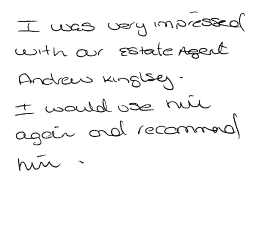 I was very impressed
with our Estate Agent
Andrew Kinglsey.
I would use him
again and recommend
him.